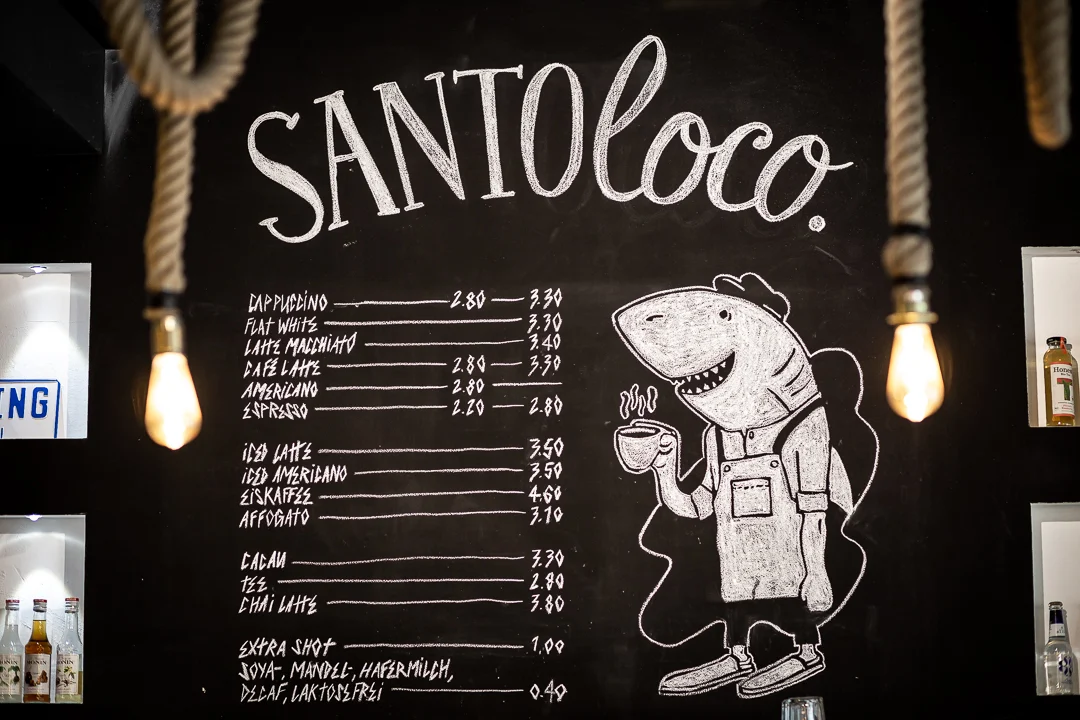 SANTO loco.
CAPPUCCINO 2.80 3.30
FLAT WHITE 3.30
LATTE MACCHIATO 3.40
CAFÉ LATTE 2.80 3.30
AMERICANO 2.80
ESPRESSO 2.20 2.80
ICED LATTE 3.50
ICED AMERICANO 3.50
EISKAFFEE 4.60
AFFOGATO 3.70
CACAU 3.30
TEE 2.80
CHAI LATTE 3.80
EXTRA SHOT 1.00
SOYA-, MANDEL-, HAFERMILCH,
DECAF, LAKTOSEFREI 0.40
ING
MONIN
MONIN
MONIN